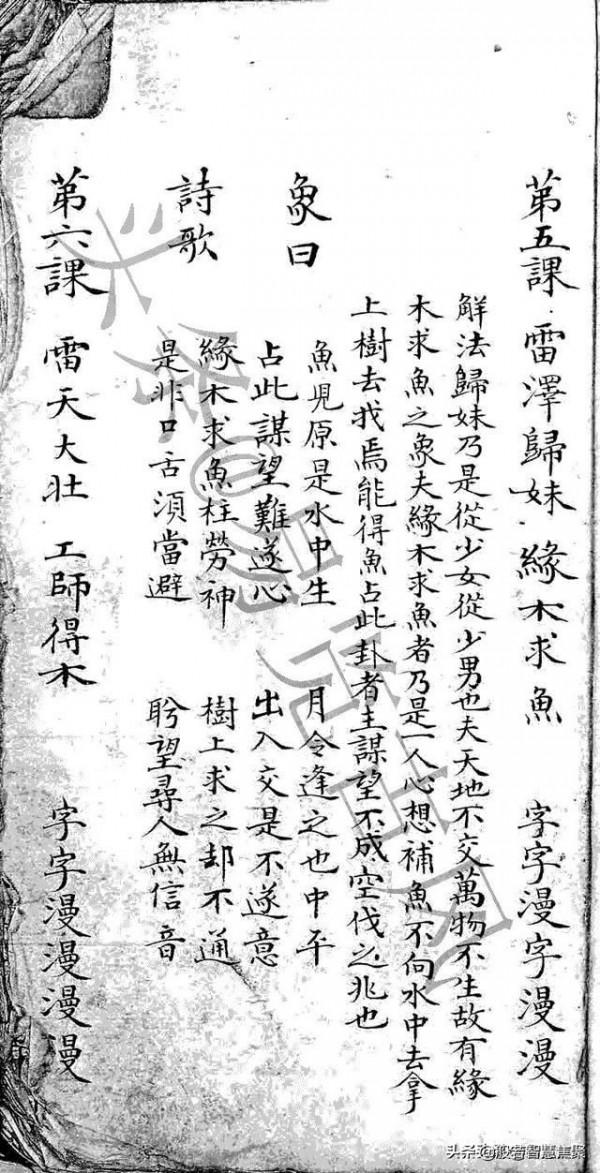 第五課 雷澤歸妹 緣木求魚 字字漫字漫漫
解法歸妹乃是從少女從少男也夫天地不交萬物不生故有緣
木求魚之象夫緣木求魚者乃是一人心想補魚不向水中去拿
上樹去找焉能得魚占此卦者主謀望不成空伐之兆也
象曰 魚兒原是水中生 月令逢之也中平
占此謀望難遂心 出入交是不遂意
詩歌 緣木求魚柱勞神 樹上求之却不通
是非口舌須當避 望尋人無信音
第六課 雷天大壯 工師得木 字字漫漫漫漫
头条@般若智慧焦聚